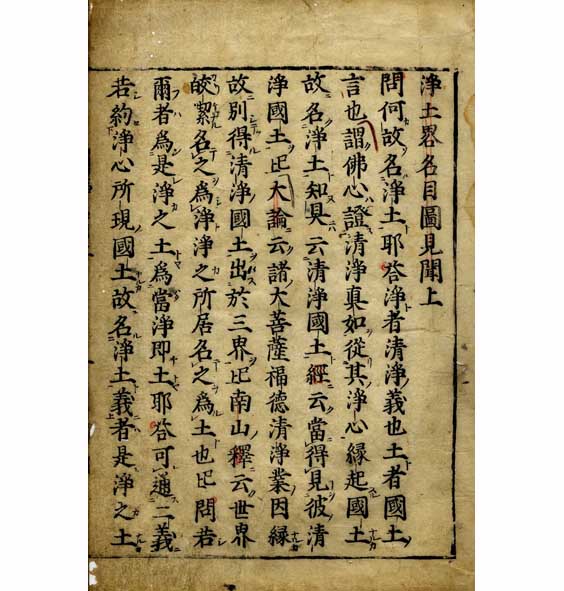 淨土畧名目圖見聞上
問何故名淨土耶荅淨者清淨義也土者國土
言也謂佛心證清淨眞如從其淨心緣起國土
故名淨土知見云清淨國土經云當得見彼清
淨國土㠯大論云諸大菩薩福德清淨業因緣
故別得清淨國土出於三界㠯南山釋云世界
皎絜名之爲淨淨之所居名之爲土也㠯問若
爾者爲是淨之土爲當淨即土耶荅可通二義
若約淨心所現國土故名淨土義者是淨之土